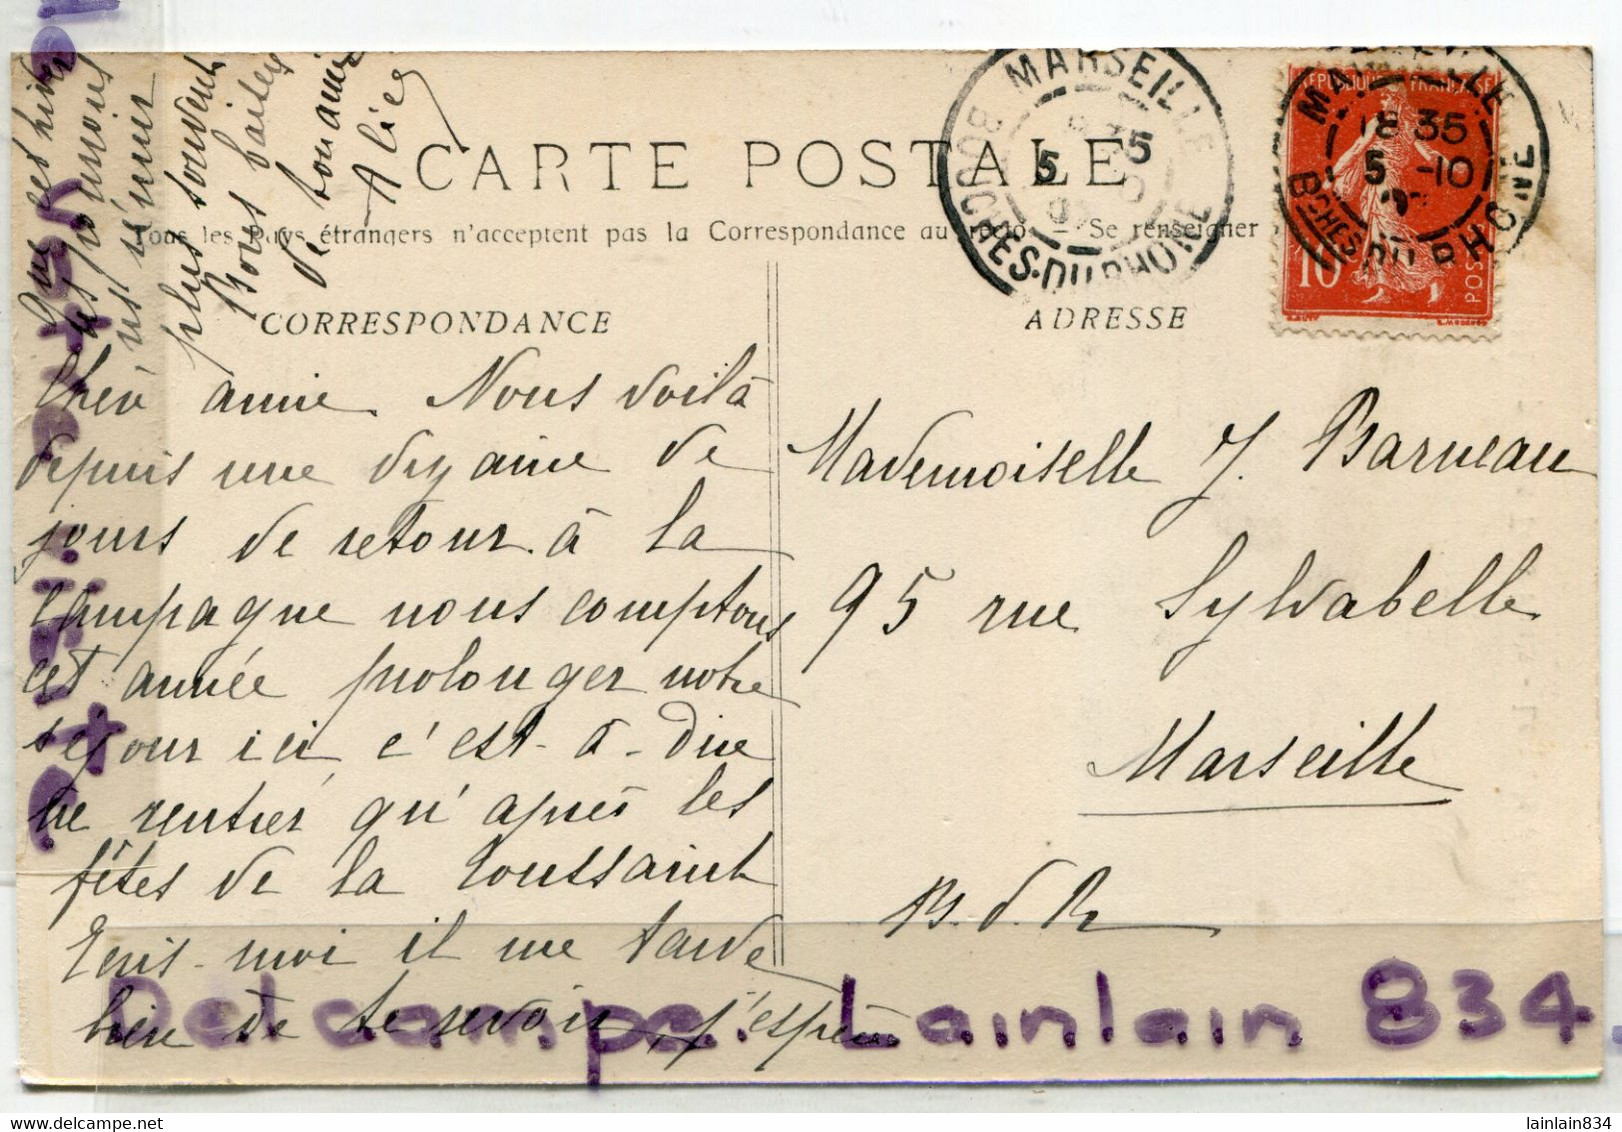 CARTE POSTALE
Tous les Pays étrangers n'acceptent pas la Correspondance au recto - Se renseigner
CORRESPONDANCE
ADRESSE
Cher amie. Nous voilà
depuis une dizaine de
jours de retour à la
campagne nous comptons
cet année prolonger notre
séjour ici c'est-à-dire
ne rentrer qu'après les
fêtes de la Toussaint
Ecris-moi il me tarde
bien de te revoir j'espère
que cet hiver
nous pourrions
nous réunir
plus souvent
Bons baisers
de ton amie
Alice
Mademoiselle J. Barneau
95 rue Sylvabelle
Marseille
B. d. R
MARSEILLE
BOUCHES-DU-RHONE
5
MARSEILLE
18 35
5 -10
BCHES DU RHONE
RÉPUBLIQUE FRANÇAISE
10
POSTES
Delcampe. Lainlain 834.
lainlain834